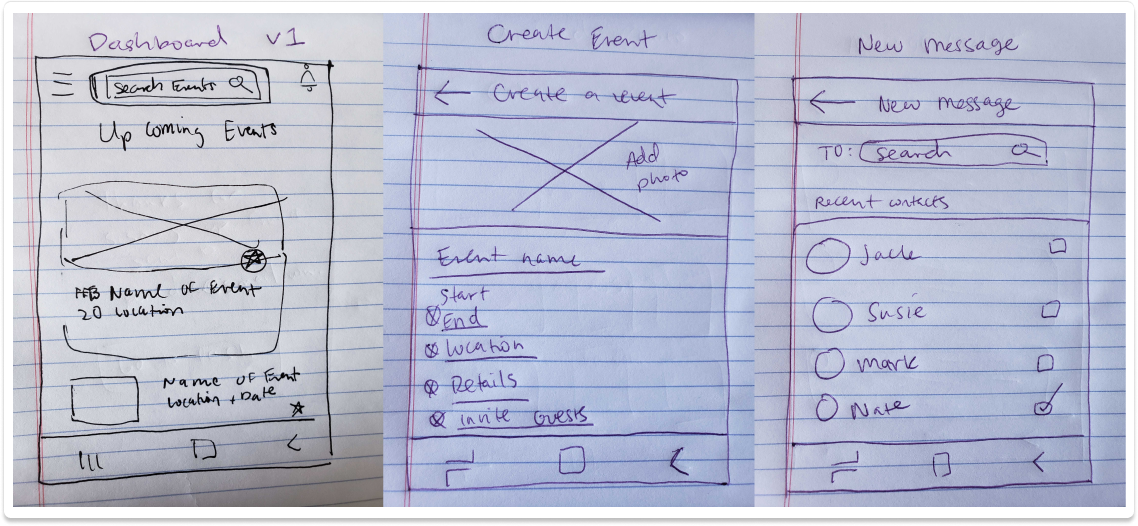 Dashboard v1
Search Events
Up coming Events
FEB Name of Event
20 Location
Name of Event
Location + Date
Create Event
Create a event
Add
photo
Event name
Start
End
Location
Details
invite Guests
New message
New message
TO: search
Recent contacts
Jack
Susie
mark
Nate